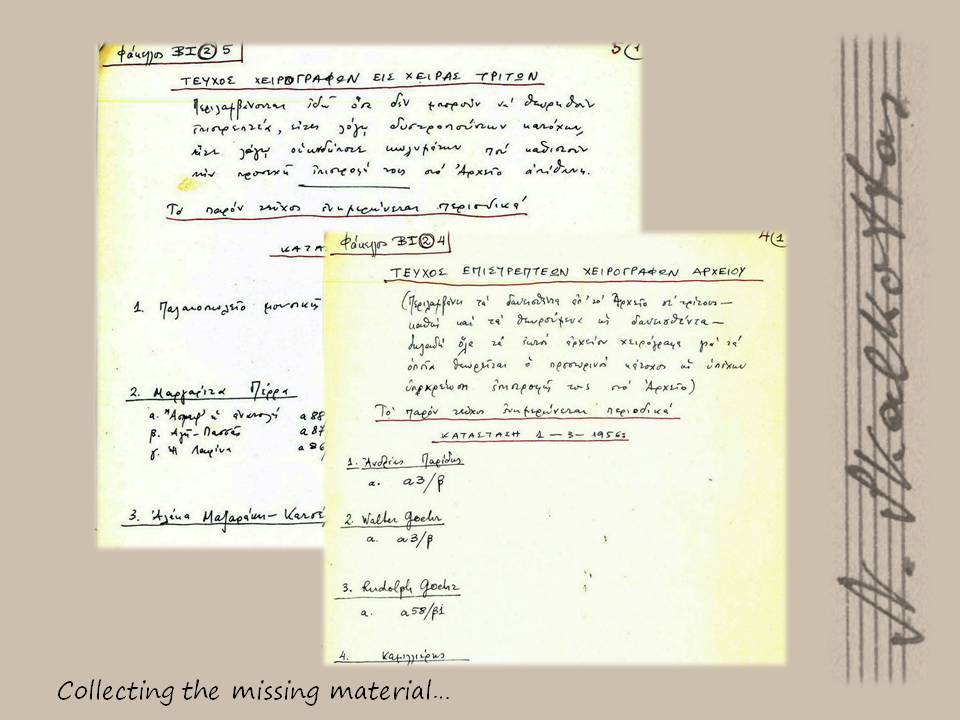 Φάκελος ΒΙ② 5
5(1
ΤΕΥΧΟΣ ΧΕΙΡΟΓΡΑΦΩΝ ΕΙΣ ΧΕΙΡΑΣ ΤΡΙΤΩΝ
Περιλαμβάνονται ἐδῶ ὅσα δέν μποροῦν νά θεωρηθοῦν
ἐπιστρεπτέα, εἴτε λόγῳ δυστροπούντων κατόχων,
εἴτε λόγῳ κωλυμάτων πού καθιστοῦν
τήν ἐπιστροφή τους στό Ἀρχεῖο ἀπίθανη.
Τό παρόν τεῦχος ἐνημερώνεται περιοδικά
ΚΑΤΑ
1. Παλαιοπωλεῖο μουσικῆς
2. Μαργαρίτα Πέρρα
α. ἀνατολή α88
β. Ἀλῆ-Πασσᾶς α87
γ. Ἡ Λαφίνα α86
3. Ἀλέκα Μαζαράκη-Κατσέ
Φάκελος ΒΙ② 4
4(1
ΤΕΥΧΟΣ ΕΠΙΣΤΡΕΠΤΕΩΝ ΧΕΙΡΟΓΡΑΦΩΝ ΑΡΧΕΙΟΥ
(Περιλαμβάνει τά δανεισθέντα ἀπ' τό Ἀρχεῖο σέ τρίτους—
καθώς καί τά θεωρούμενα ὡς δανεισθέντα—
δηλαδή ὅλα τά χειρόγραφα γιά τά
ὁποῖα θεωρεῖται ὁ προσωρινός κάτοχος ὡς ὑπέχων
ὑποχρέωση ἐπιστροφῆς τους στό Ἀρχεῖο)
Τό παρόν τεῦχος ἐνημερώνεται περιοδικά
ΚΑΤΑΣΤΑΣΗ 1-3-1956:
1. Ἀνδρέας Παρίδης
α. α3/β
2. Walter Goehr
α. α3/β
3. Rudolph Goehr
α. α58/βi
4. Καμιλλιέρης
N. Skalkottas
Collecting the missing material...